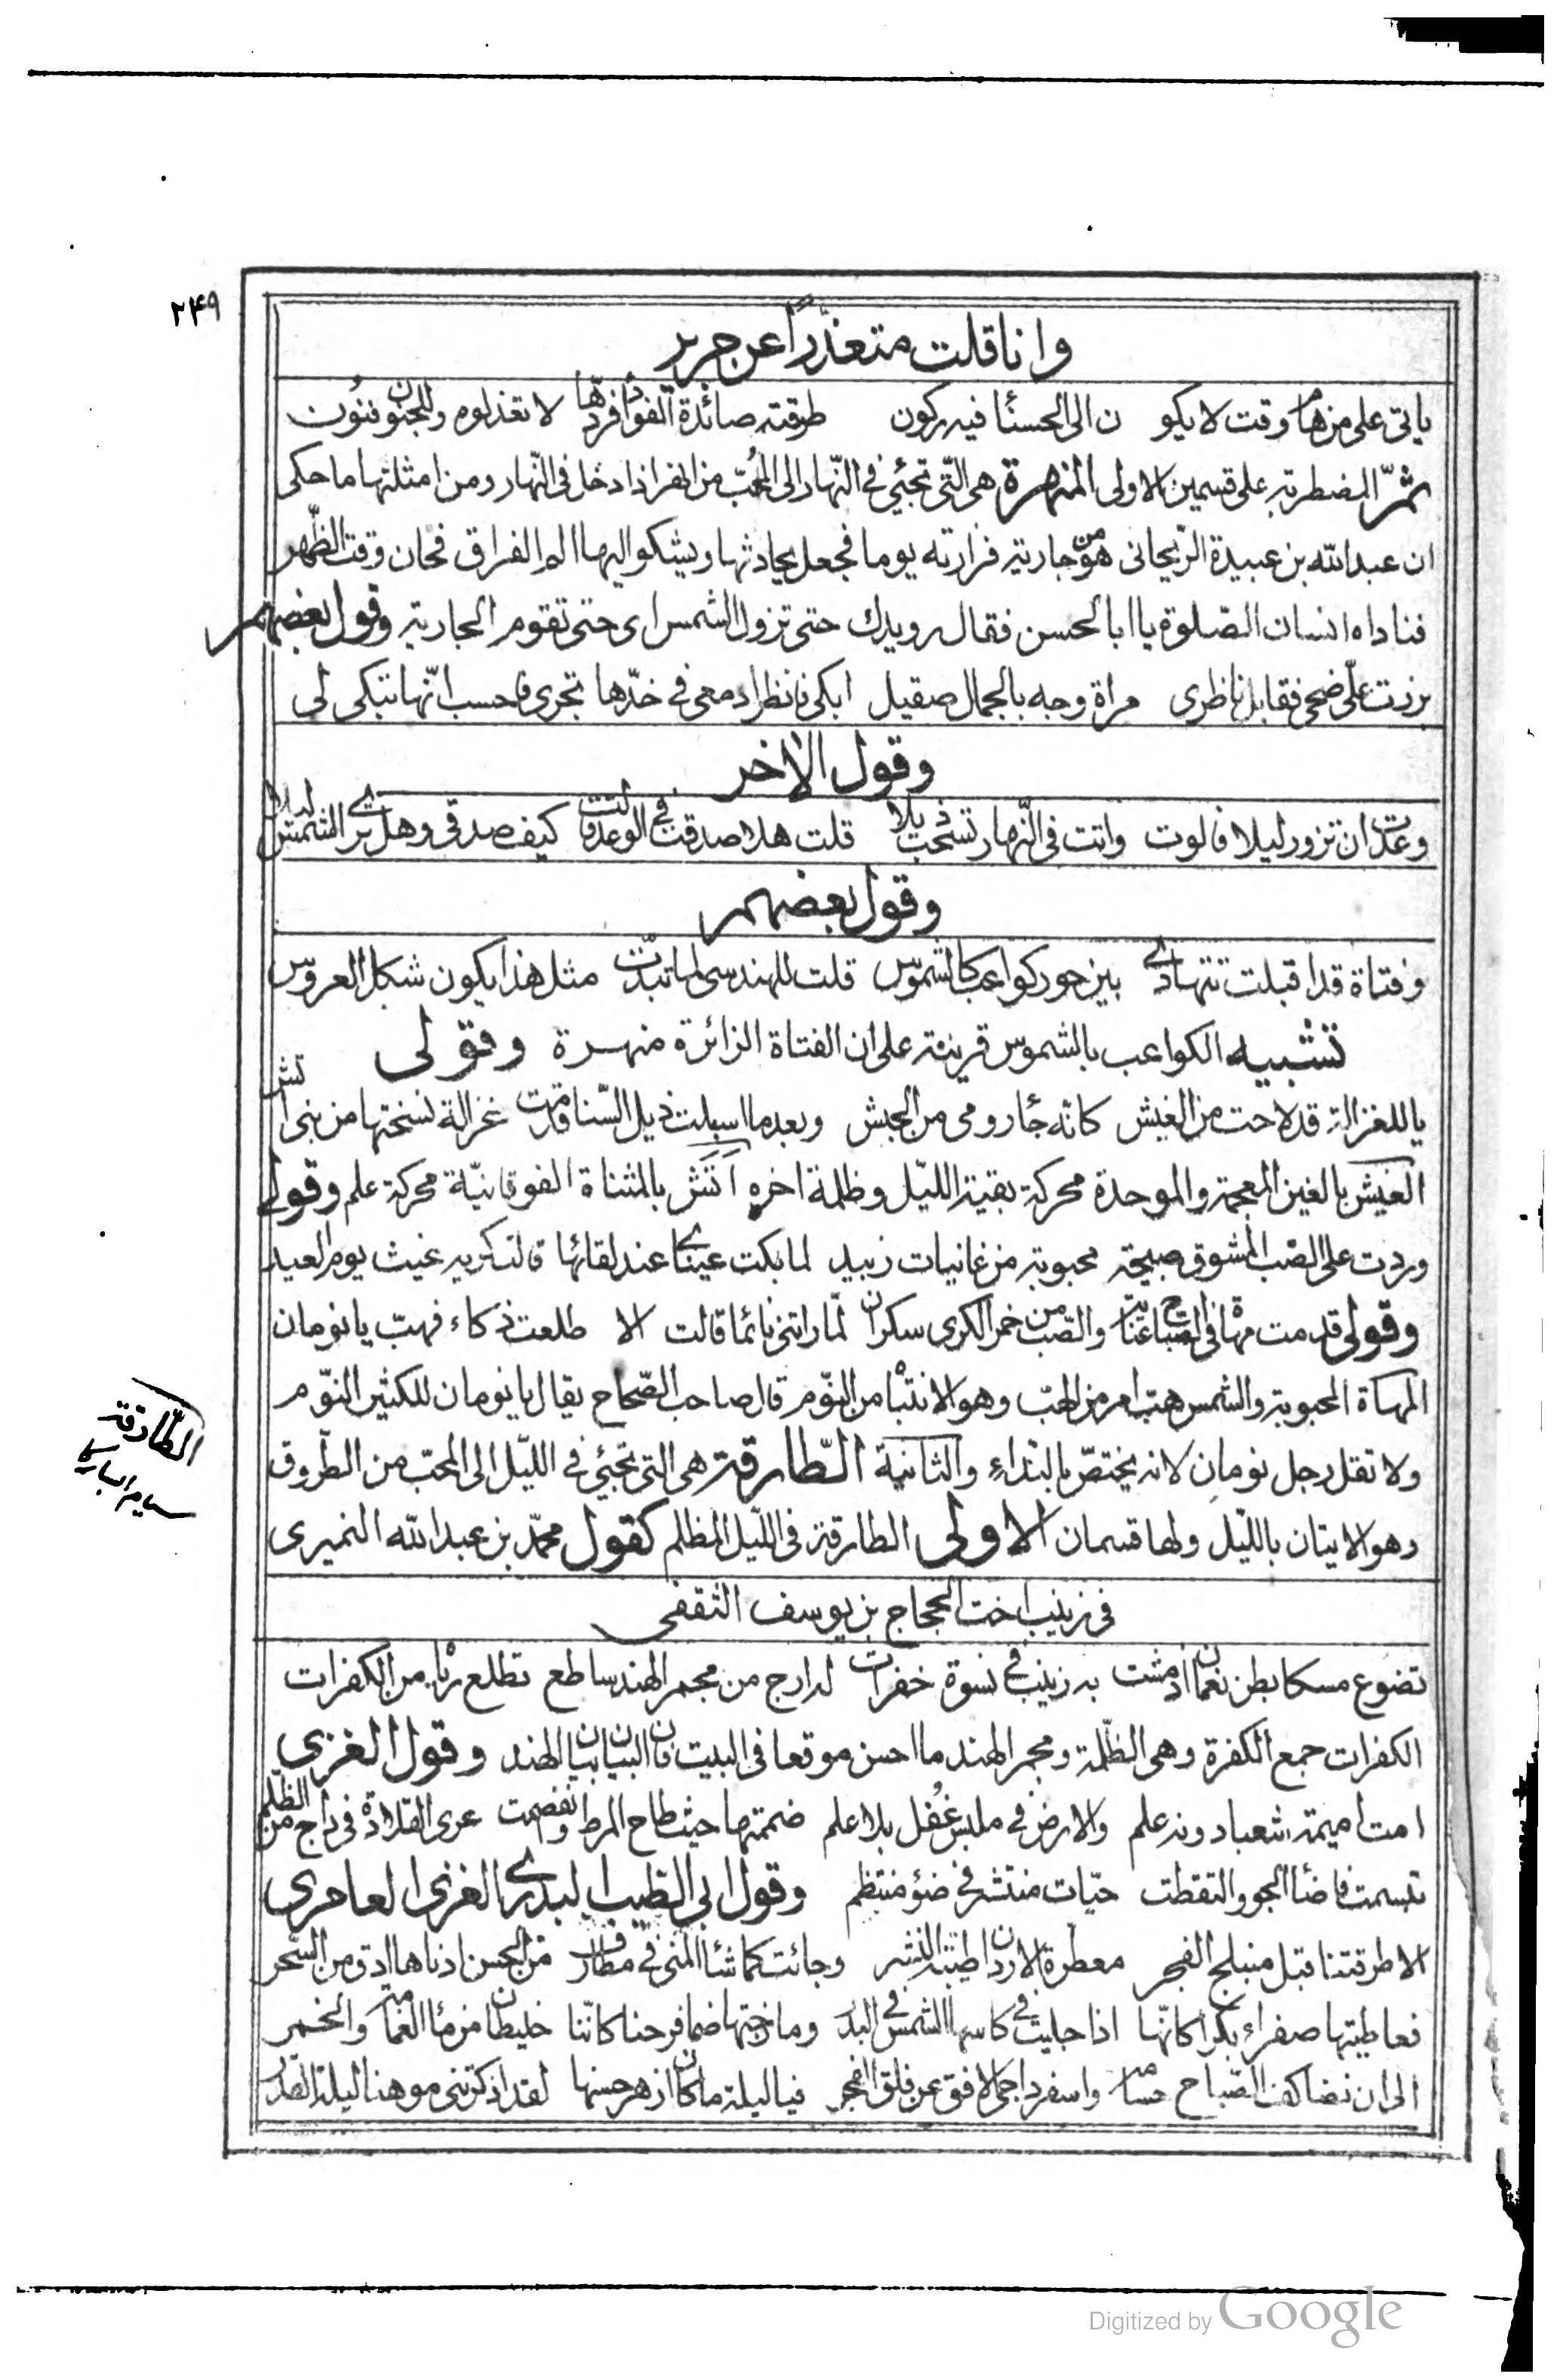 ٢٤٩
وانا قلت متعذّرًا عن جرير
ياتى على من هام وقت لا يكو ن الى الحسنأ فيه ركون طرقته صائدة الفؤاد فردّها لا تعذلوه وللجنون فنون
ثمّ المضطربة على قسمين الاولى المنهرة هى الّتى تجئي فى النّهار الى المُحبّ من انهر اذا دخل فى النّهار ومن امثلتها ما حكى
ان عبد الله بن عبيدة الرّيحانى هوى جارية فزارته يوما فجعل يحادثها ويشكو اليها الم الفراق فحان وقت الظّهر
فناداه انسان الصّلوة يا ابا الحسن فقال رويدك حتى تزول الشمس اى حتى تقوم الجارية وقول بعضهم
برزت علىّ ضحى فقابل ناظرى مراة وجه بالجمال صقيل ابكى فانظر ادمعى فى خدّها تجرى فاحسب انّها تبكى لى
وقول الاخر
وعدت ان تزور ليلا فالوت واتت فى النّهار تسحب ذيلا قلت هلا صدقت فى الوعد قالت كيف صدقى وهل ترى الشمس ليلا
وقول بعضهم
وفتاة قد اقبلت تتهادى بين حور كواعب كالشموس قلت للهندسى لما تبدّت مثل هذا يكون شكل العروس
تشبيه الكواعب بالشموس قرينة على ان الفتاة الزائرة منهرة وقولى
يا للغزالة قد لاحت من الغبش كانّه جأ رومى من الحبش وبعد ما اسبلت ذيل السّنا قدمت غزالة نسختها من بنى اتش
الغبش بالغين المعجمة والموحدة محركة بقية الليّل وظلمة اخره اَتَش بالمثناة الفوقانيّة محركة علم وقولى
وردت على الصّب المشوق صبيحة محبوبة من غانيات زبيد لما بكت عيناى عند لقائها قالت كريه غيث يوم العيد
وقولى قدمت مهاة فى الصّباح عناية والصّب من خمر الكرى سكران لمّا راتنى نائما قالت الا طلعت ذكاء فهبّ يا نومان
المهاة المحبوبة والشمس هبّ امر من الهبّ وهو الانتباه من النّوم قال صاحب الصّحاح يقال يا نومان للكثير النّوم
ولا تقل رجل نومان لانه يختصّ بالنداء والثانية الطّارقة هى التى تجئي فى اللّيل الى المحبّ من الطّروق
وهو الاتيان باللّيل ولها قسمان الاولى الطارقة فى اللّيل المظلم كقول محمّد بن عبد الله النميرى
الطّارقة
فى زينب اخت الحجاج بن يوسف الثقفى
تضوع مسكا بطن نعمان اذ مشت به زينب فى نسوة خفرات له ارج من مجمر الهند ساطع تطلع رياه من الكفرات
الكفرات جمع الكفرة وهى الظّلمة ومجمر الهند ما احسن موقعا فى البيت فان البيان بيان الهند وقول الغزى
امت اميمة شعبا دونه علم والارض فى ملبس غُفل بلا علم ضممتها حيث طاح المرط وانفصمت عرى القلادة فى داج من الظّلم
تبسمت فاضأ الجو والتقطت حبّات منتشر فى ضؤ منتظم وقول ابى الطّيب البدرى الغزى العامرى
الا طرقتنا قبل منبلج الفجر معطرة الاردان طيّبة النشر وجائت كما شأ المنى فى مطارف من الحسن اذناها ادق من السّحر
فعاطيتها صفراء بكرا كانّها اذا جليت فى كاسها الشمس فى البدر ومازجتها ضما فرحنا كانّنا خليطان من مأ الغمامة والخمر
الى ان نضا كف الصّباح حسامه واسفر داجى الافق عن فلق الفجر فيا ليلة ما كان ازهر حسنها لقد اذكرتنى موهنا ليلة القدر
Digitized by Google